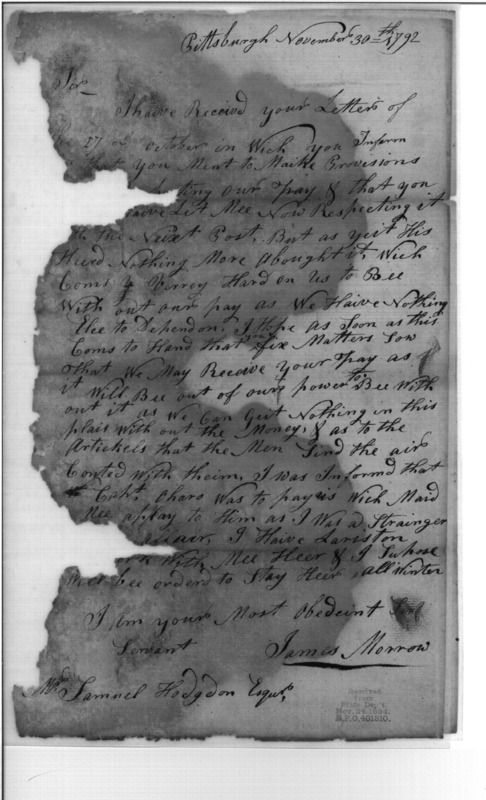 Pittsburgh Novembr 30th 1792
Sir
I haive Receivd your Letters of
the 27 of october in Wich you Inform
that you Ment to Maike Provisions
our Pay & that you
Let Mee Now Respecting it
the Nixt Post, But as yeit His
Heird Nothing More About it, Wich
Coms Verrey Hard on Us to Bee
With out our pay as We Haive Nothing
Elce to Dependon. I Hope as Soon as this
Coms to Hand that you Matters Sow
that We May Receve your Pay as
it Will Bee out of our power to Bee With
out it as We Can Geit Nothing in this
plais With out the Money; & as to the
Artickels that the Men the air
With theim, I was Informd that
Capt. was to pay Wich Maid
Mee applay to Him as I Was a Strainger
I Haive Lariston
With Mee Heer & I Suhose
Bee orderd to Stay Heir all Winter
I am your Most Obedeint
Servant James Morrow
Mr Samuel Hodgdon Esqur
Received
from
State Dep't.
Nov. 24, 1894.
R.P.O. 401310.